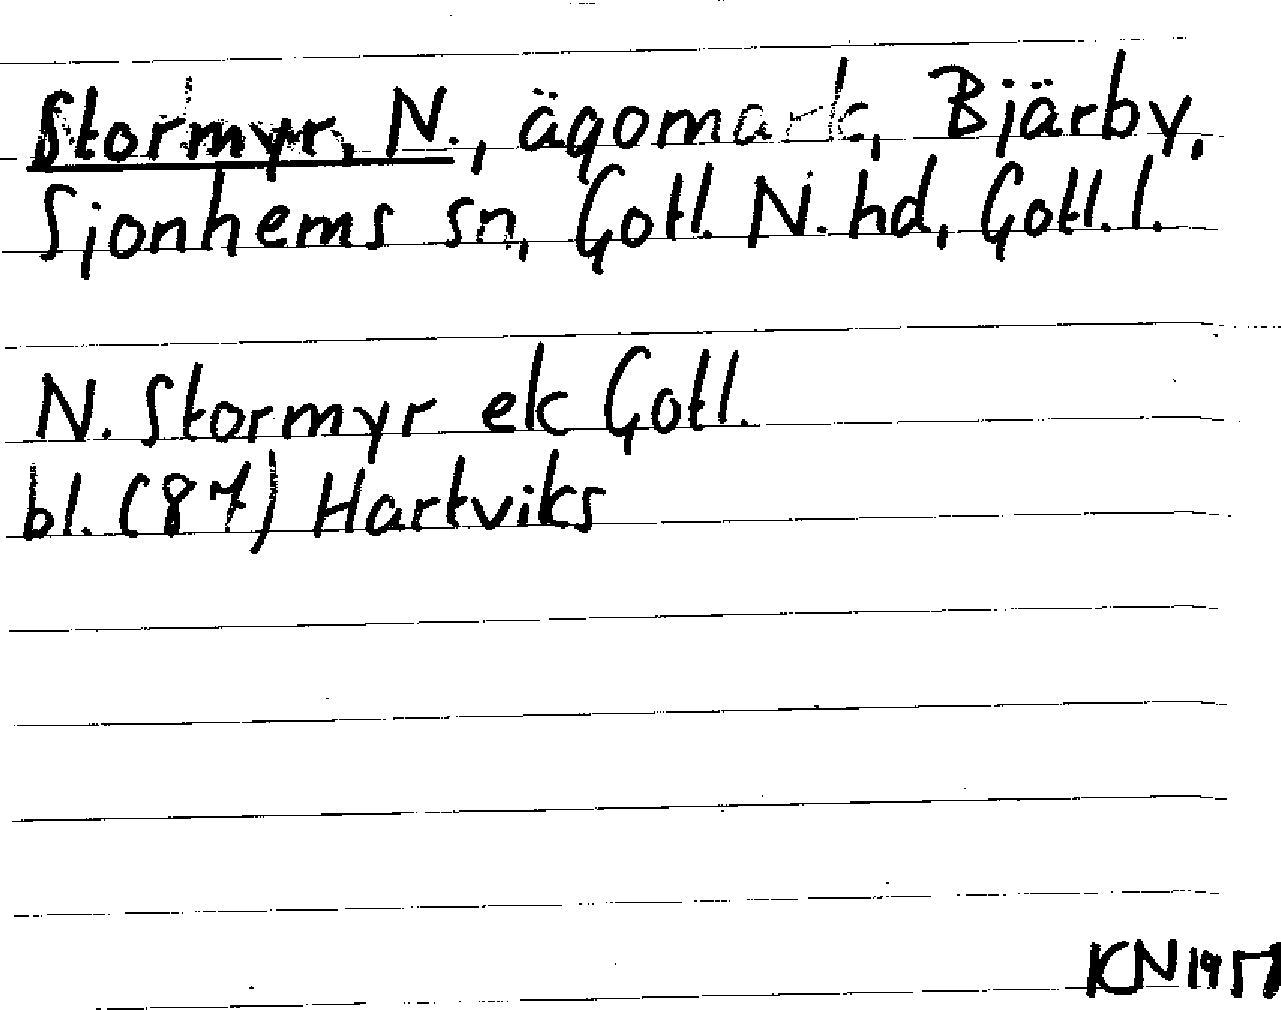 Stormyr, N., ägomark, Bjärby,
Sjonhems sn, Gotl. N. hd, Gotl. l.
N. Stormyr ek Gotl.
bl. (87) Hartviks
KN 1957